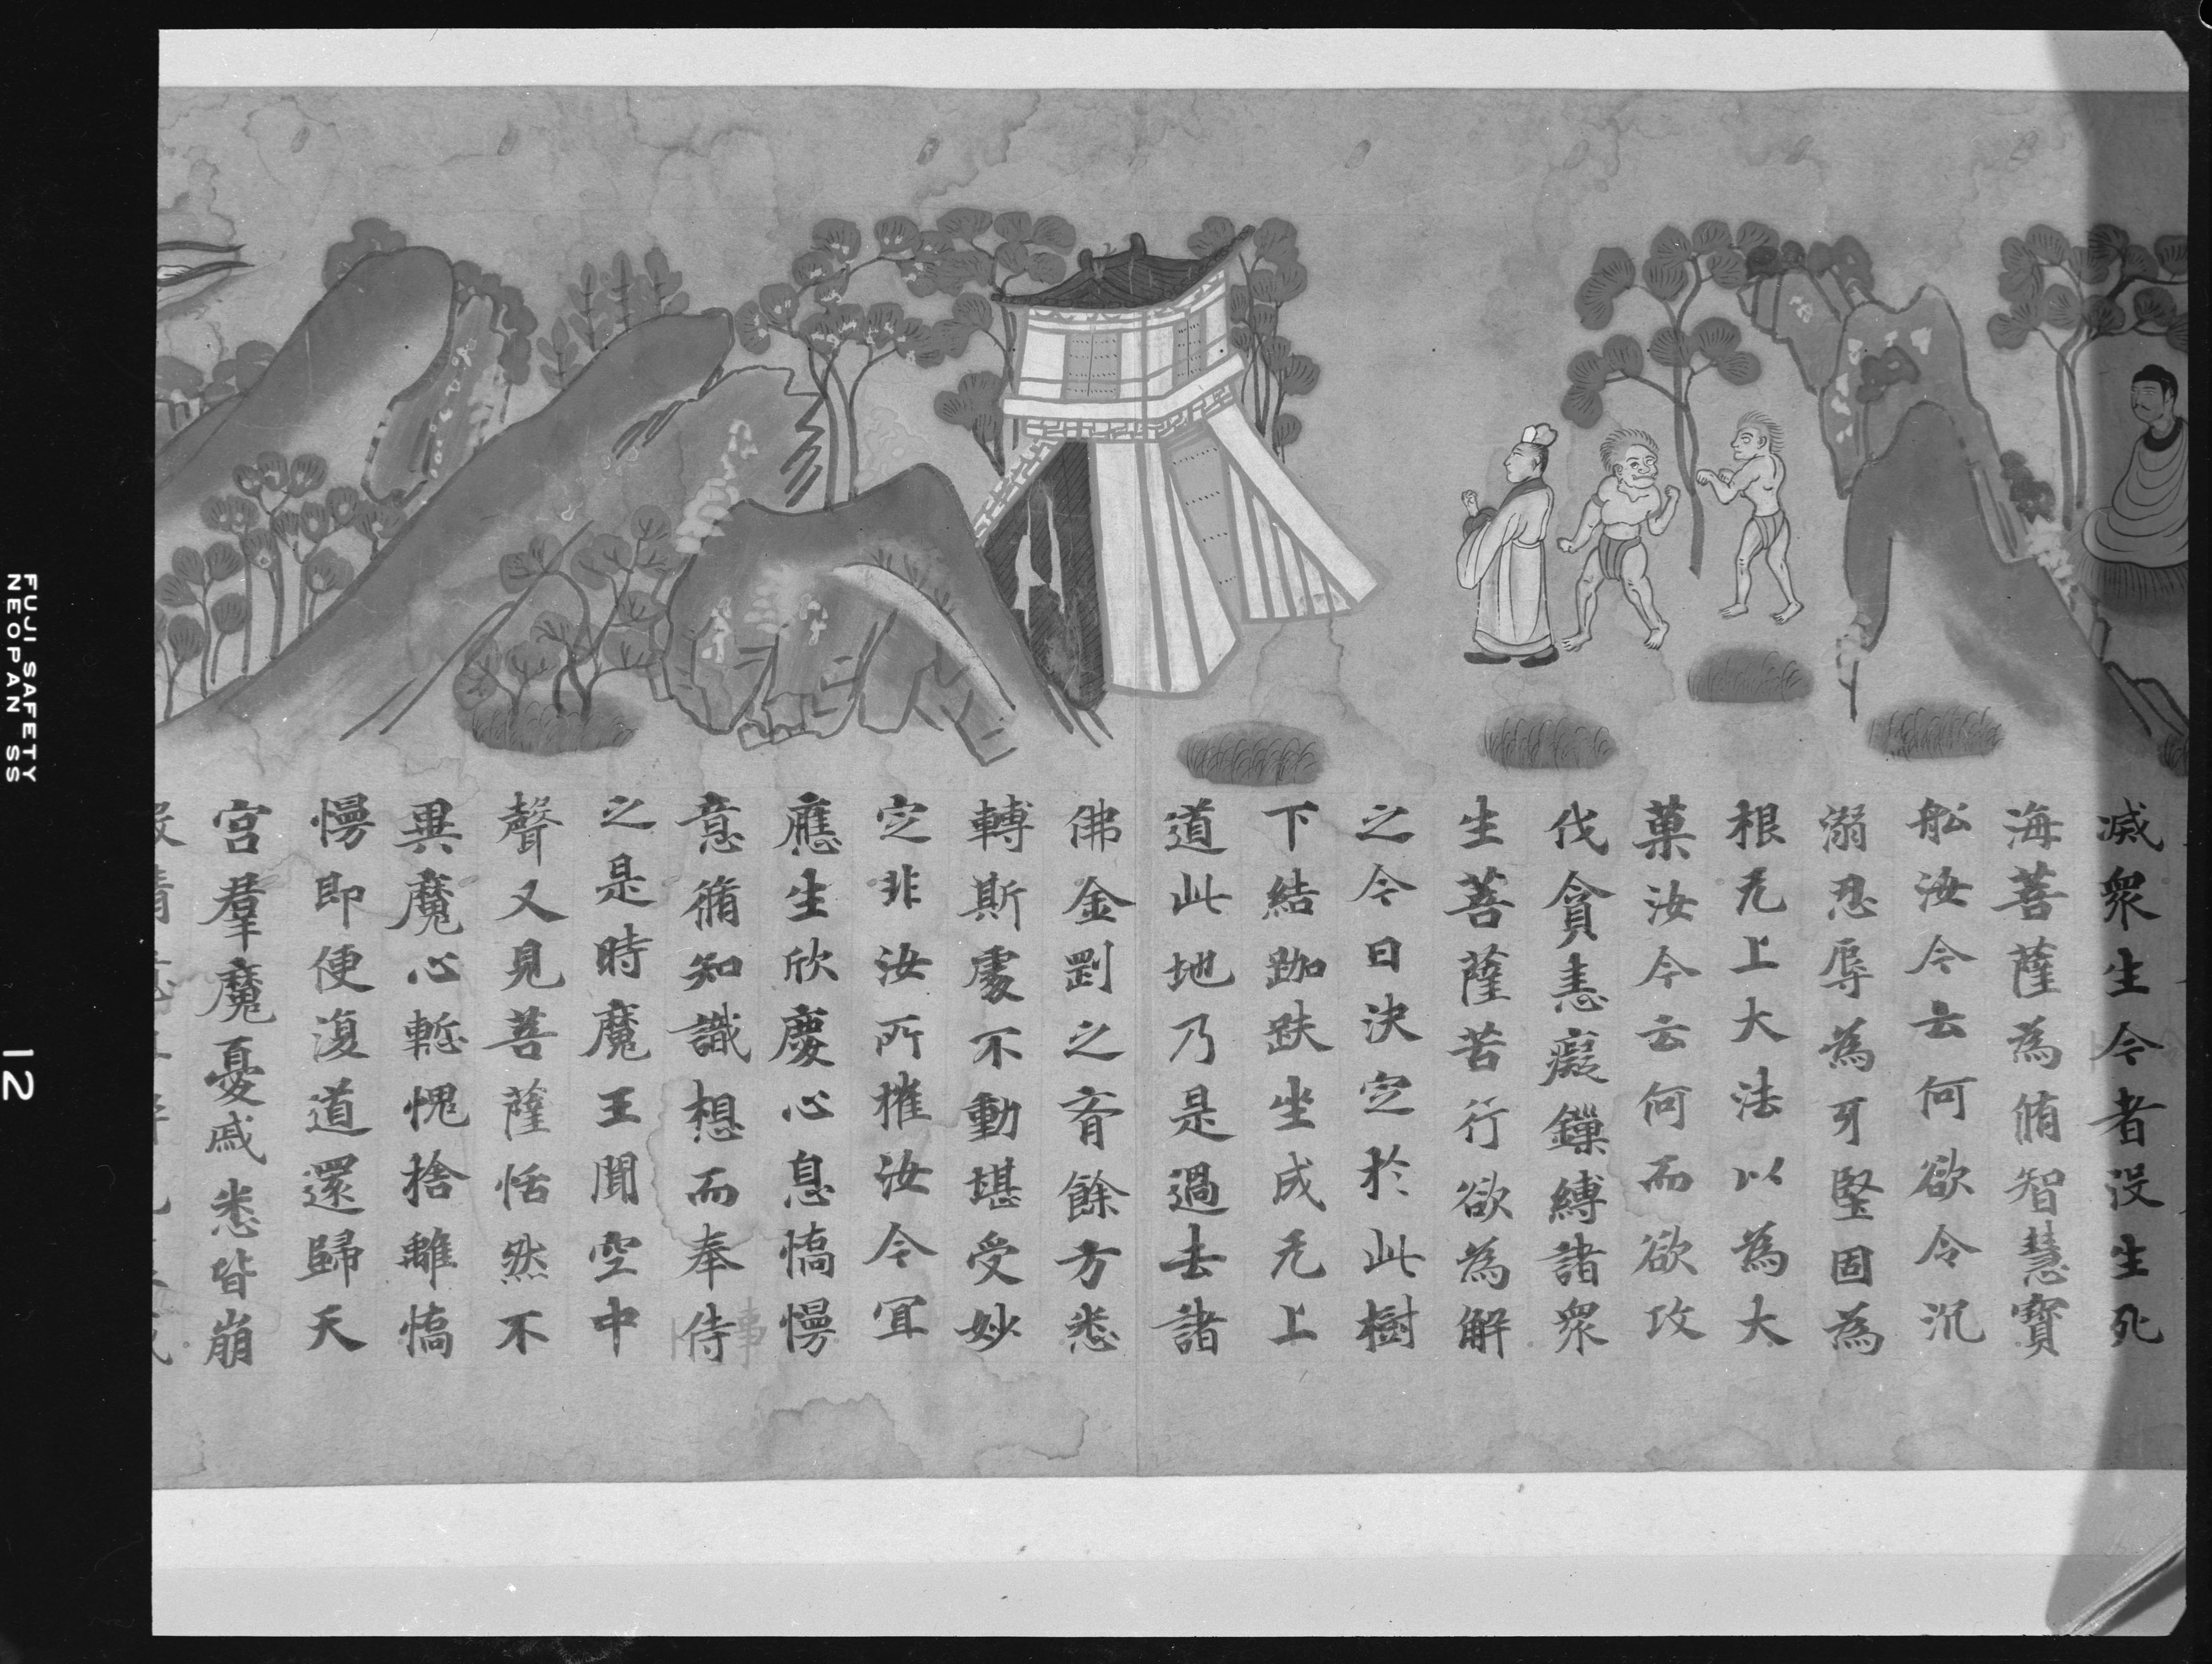 滅衆生今者没生死
海菩薩為脩智慧寶
舩汝今云何欲令沉
溺忍辱為牙堅固為
根无上大法以為大
菓汝今云何而欲攻
伐貪恚癡鏁縛諸衆
生菩薩苦行欲為解
之今日決定於此樹
下結跏趺坐成无上
道此地乃是過去諸
佛金剛之齊餘方悉
轉斯處不動堪受妙
定非汝所摧汝今宜
應生欣慶心息憍慢
意脩知識想而奉侍
事
之是時魔王聞空中
聲又見菩薩恬然不
異魔心慙愧捨離憍
慢即便復道還歸天
宮羣魔憂慼悉皆崩
FUJI SAFETY
NEOPAN SS
12